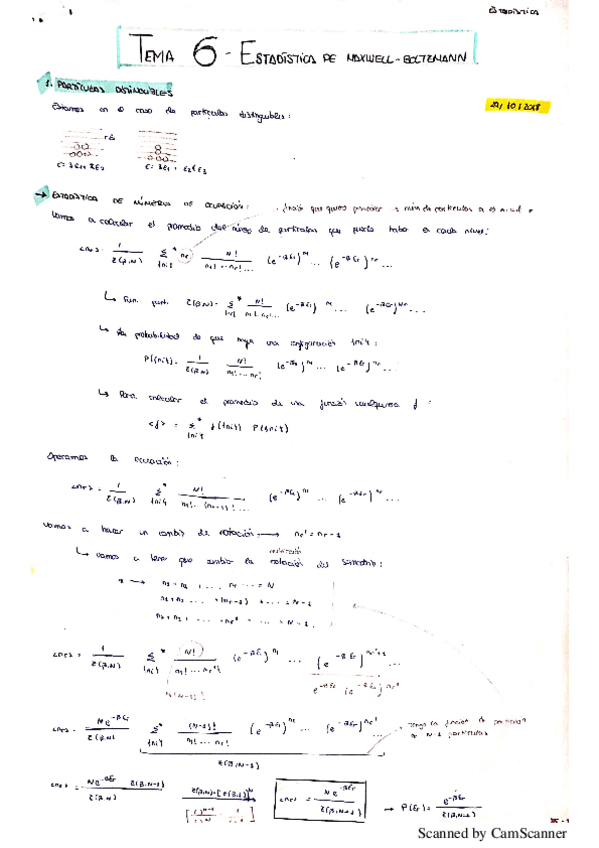 ESTADÍSTICA
TEMA 6 - ESTADÍSTICA DE MAXWELL-BOLTZMANN
1. PARTÍCULAS DISTINGUIBLES
29/10/2018
Estamos en el caso de partículas distinguibles:
→ ESTADÍSTICA DE NÚMEROS DE OCUPACIÓN:
Vamos a calcular el promedio del núm de partículas que puede haber en cada nivel:
<nr> = 1/Z(β,N) Σ* {ni} nr N!/n1!...nr!... (e^-βE1)^n1 ... (e^-βEr)^nr ...
↳ Fun. part. Z(β,N) = Σ* {ni} N!/n1!...nr!... (e^-βE1)^n1 ... (e^-βEr)^nr ...
↳ La probabilidad de que haya una configuración {ni}:
P({ni}) = 1/Z(β,N) N!/n1!...nr!... (e^-βE1)^n1 ... (e^-βEr)^nr ...
↳ Para calcular el promedio de una función cualquiera f:
<f> = Σ* {ni} f({ni}) P({ni})
Operamos la ecuación:
<nr> = 1/Z(β,N) Σ* {ni} N!/n1!...(nr-1)!... (e^-βE1)^n1 ... (e^-βEr)^nr ...
Vamos a hacer un cambio de notación: → nr' = nr - 1
↳ Vamos a tener que cambiar la notación del sumatorio:
* → n1 + n2 + ... nr ... = N
n1 + n2 ... + (nr-1) + ... = N-1
n1 + n2 + ... + nr' ... = N-1
<nr> = 1/Z(β,N) Σ* {ni} N!/n1!...nr'! (e^-βE1)^n1 ... (e^-βEr)^nr'+1 ...
N(N-1)!
e^-βEr (e^-βEr)^nr'
<nr> = N e^-βEr/Z(β,N) Σ* {ni} (N-1)!/n1!...nr! (e^-βE1)^n1 ... (e^-βEr)^nr' ...
Tengo la función de partición de N-1 partículas
Z(β,N-1)
<nr> = N e^-βEr Z(β,N-1)/Z(β,N)
Z(β,N) = [Z(β,1)]^N
<nr> = N e^-βEr/Z(β,1)
→ P(Er) = e^-βEr/Z(β,1)
Scanned by CamScanner